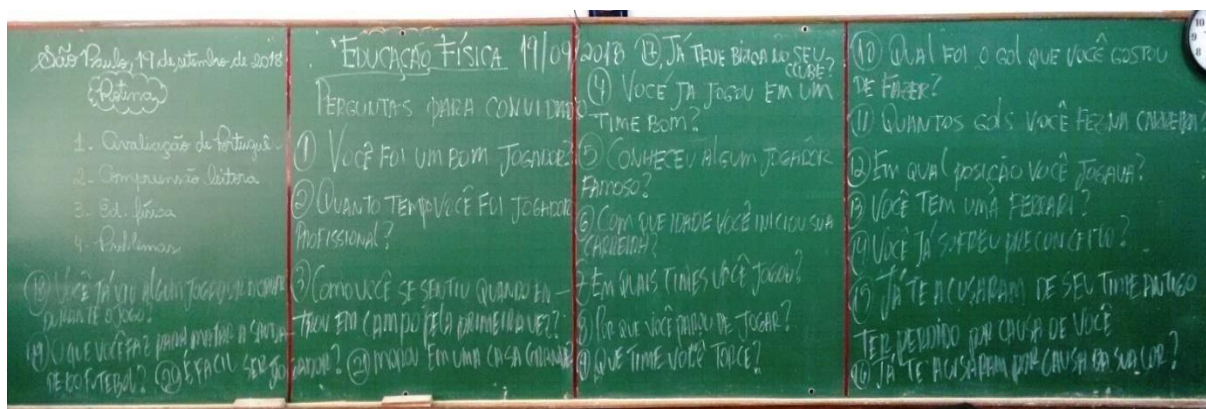 São Paulo, 19 de setembro de 2018
Rotina
1- Avaliação de Português
2- Compreensão leitora
3- Ed. física
4- Problemas
18 Você já viu algum jogador
durante o jogo?
19 O que você faz para matar a sauda-
de do futebol? 20 É fácil ser jogador? 21 Morou em uma casa grande
Educação Física 19/09/2018
Perguntas para convidado
1 Você foi um bom jogador?
2 Quanto tempo você foi jogador
profissional?
3 Como você se sentiu quando en-
trou em campo pela primeira vez?
17 Já teve briga no seu
clube?
4 Você já jogou em um
time bom?
5 Conheceu algum jogador
famoso?
6 Com que idade você iniciou sua
carreira?
7 Em quais times você jogou?
8 Por que você parou de jogar?
9 Que time você torce?
10 Qual foi o gol que você gostou
de fazer?
11 Quantos gols você fez na carreira?
12 Em qual posição você jogava?
13 Você tem uma Ferrari?
14 Você já sofreu preconceito?
15 Já te acusaram de seu time antigo
ter perdido por causa de você
16 Já te acusaram por causa da sua cor?
10
9
8